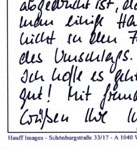 abgedruckt ist, de
man einige Ha
nicht in den F
des Umschlags.
Ich hoffe es geht
gut! Mit freund
Grüßen Ihr
Hauff Images - Schönburgstraße 33/17 - A 1040 W